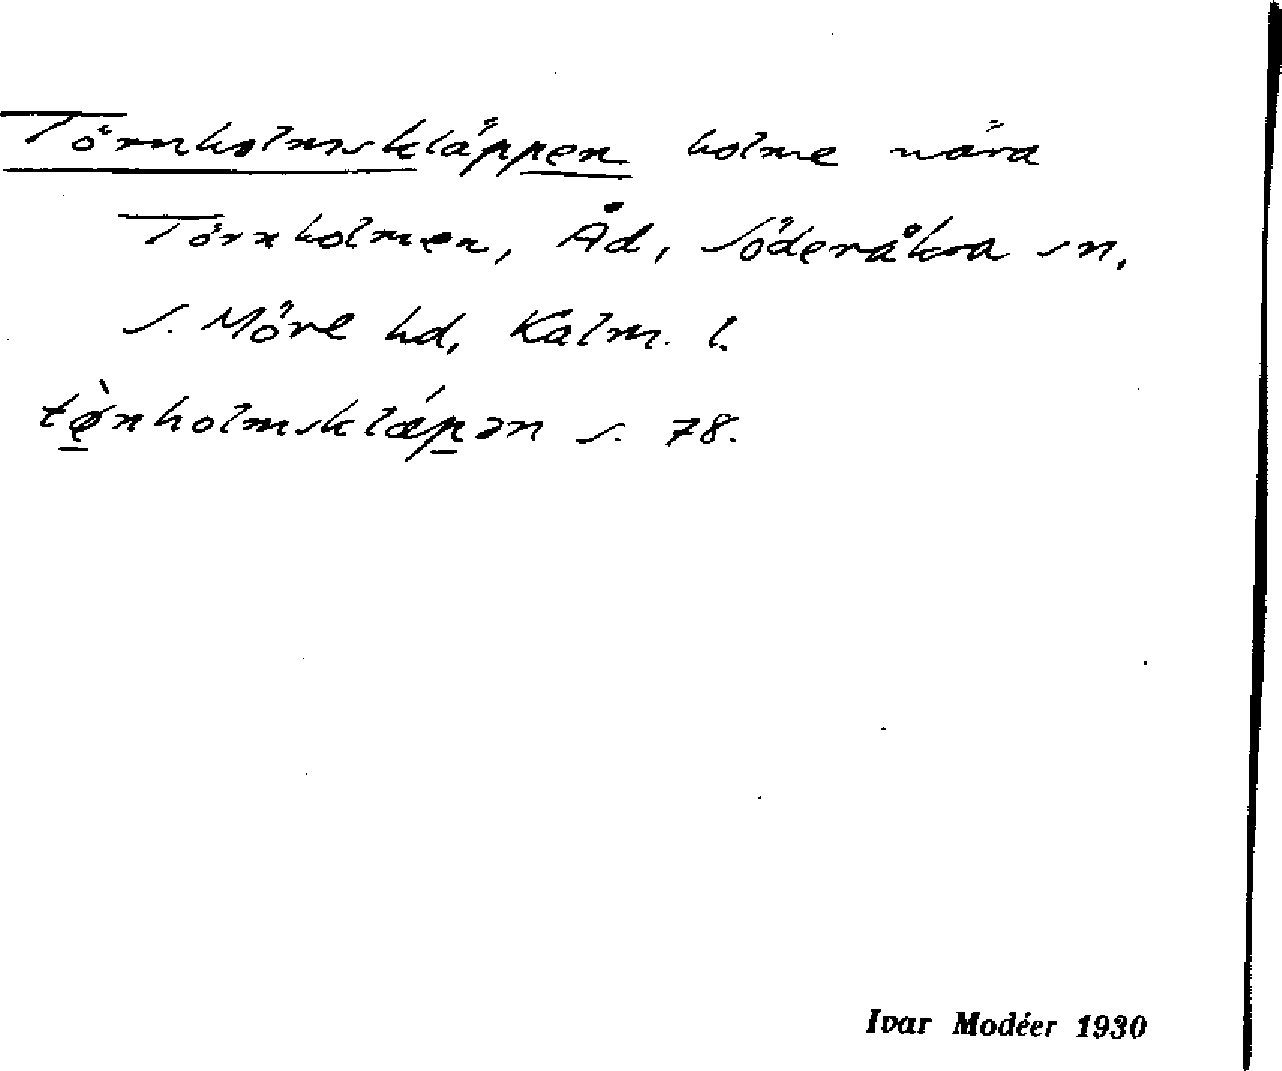 Törnholmskläppen holme nära
Törnholmen, Åd, Söderåkra sn,
s. Möre hd, Kalm. l.
tø̀nholmsklǽpən s. 78.
Ivar Modéer 1930